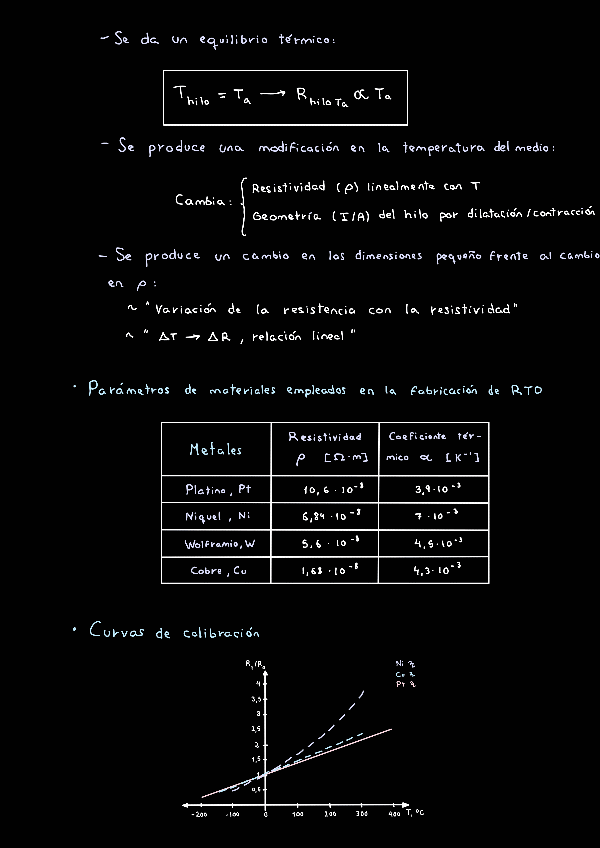 - Se da un equilibrio térmico:
T hilo = Ta → R hilo Ta ∝ Ta
- Se produce una modificación en la temperatura del medio:
Cambia:
Resistividad (ρ) linealmente con T
Geometría (I/A) del hilo por dilatación/contracción
- Se produce un cambio en las dimensiones pequeño frente al cambio
en ρ:
~ "Variación de la resistencia con la resistividad"
~ " ΔT → ΔR, relación lineal "
· Parámetros de materiales empleados en la fabricación de RTD
Metales
Resistividad
ρ [Ω·m]
Coeficiente tér-
mico ∝ [K⁻¹]
Platino, Pt 10,6 · 10⁻⁸ 3,9·10⁻³
Niquel, Ni 6,84 · 10⁻⁸ 7 · 10⁻³
Wolframio, W 5,6 · 10⁻⁸ 4,5·10⁻³
Cobre, Cu 1,68 · 10⁻⁸ 4,3·10⁻³
· Curvas de calibración
Ni
Cu
Pt
4
3,5
3
2,5
2
1,5
1
0,5
-200 -100 0 100 200 300 400 T, °C